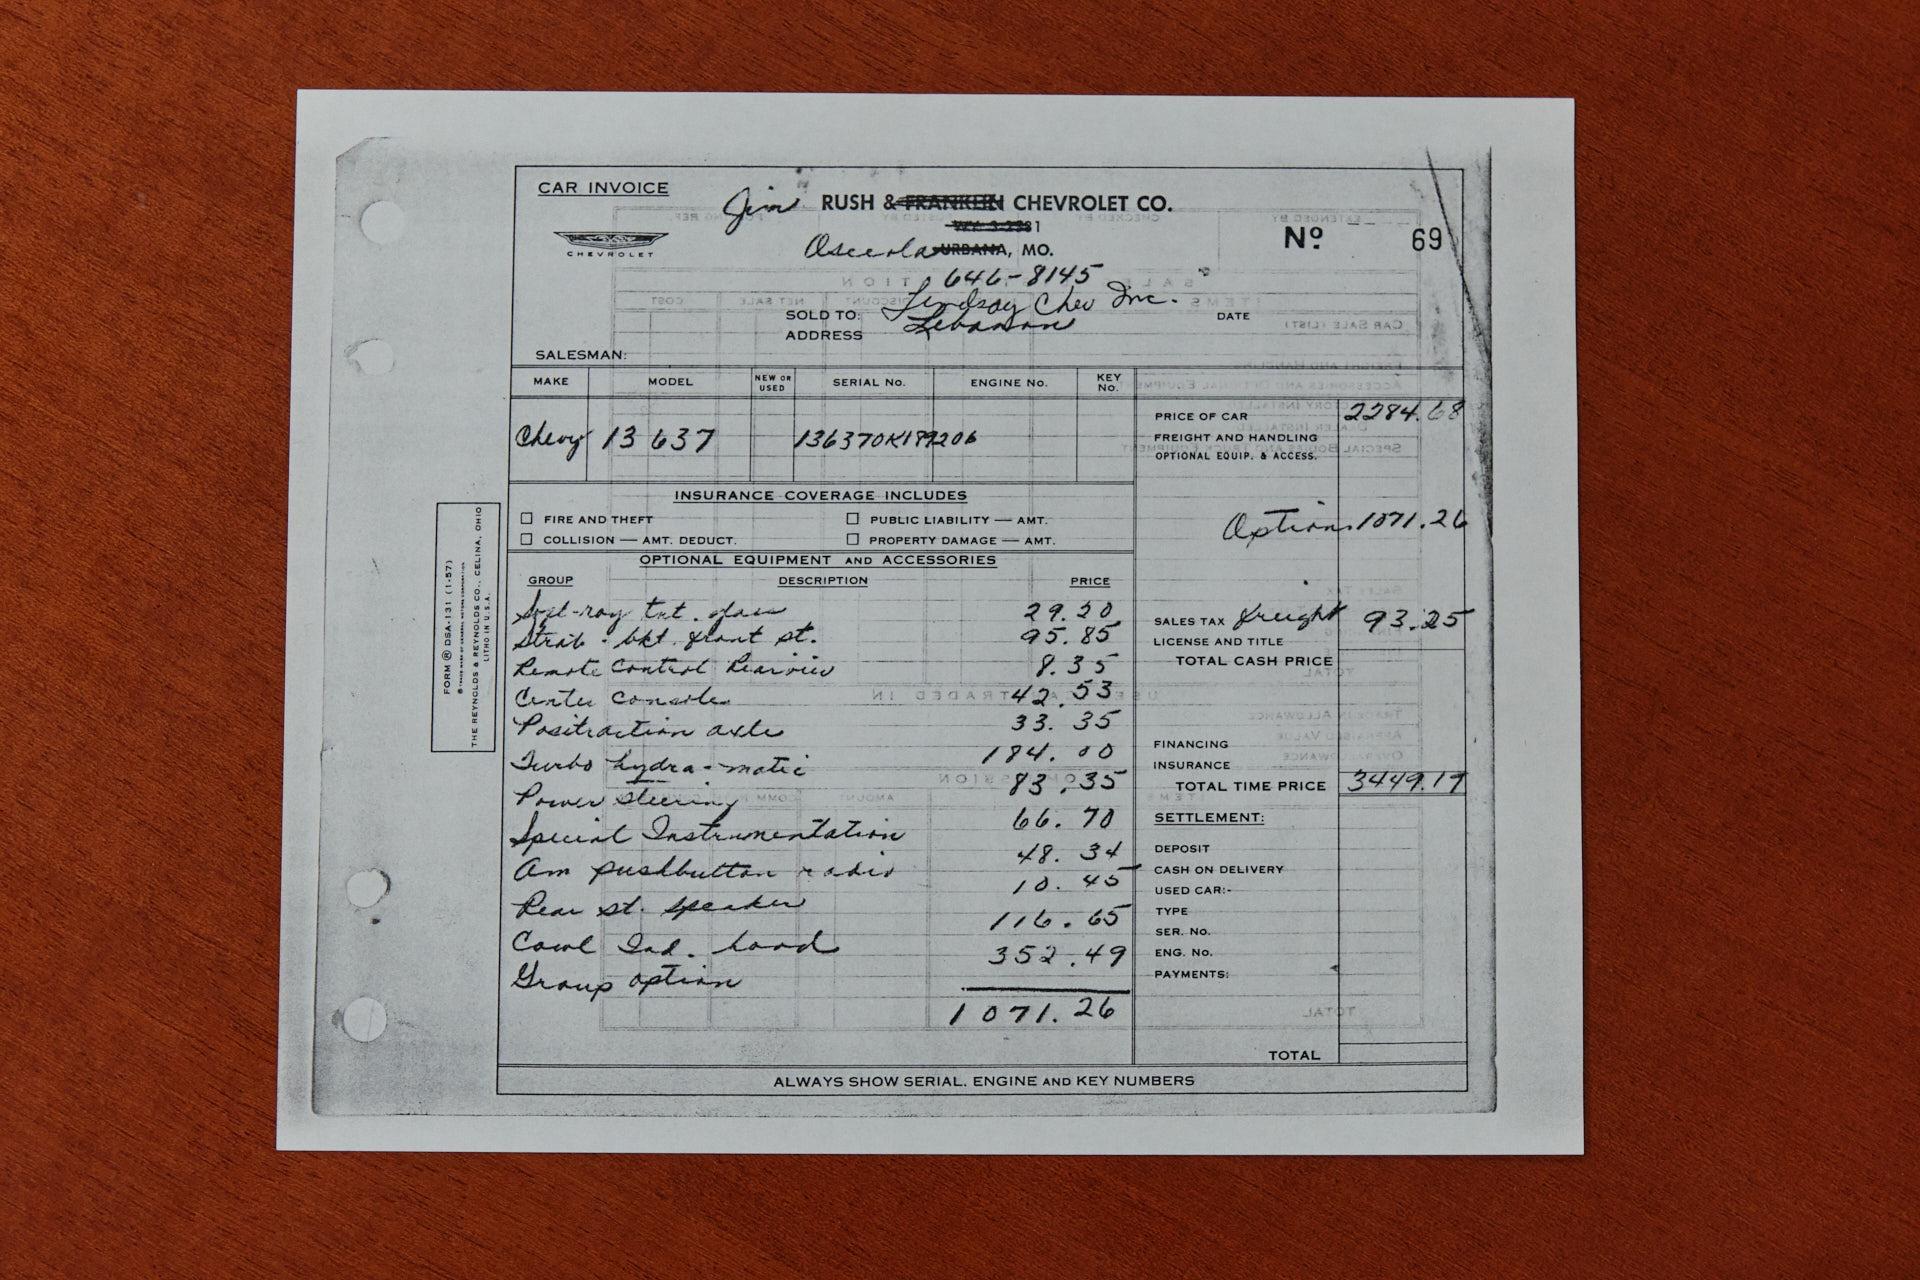 CAR INVOICE
Jim RUSH & FRANKLIN CHEVROLET CO.
CHEVROLET
Osceola URBANA, MO.
Nº 69
646-8145
SOLD TO: Lindsay Chev Inc.
DATE
ADDRESS Lebanon
SALESMAN:
MAKE MODEL NEW OR USED SERIAL No. ENGINE No. KEY No.
Chevy 13637 136370K189206
PRICE OF CAR 2284.68
FREIGHT AND HANDLING
OPTIONAL EQUIP. & ACCESS.
Options 1071.26
SALES TAX freight 93.25
LICENSE AND TITLE
TOTAL CASH PRICE
FINANCING
INSURANCE
TOTAL TIME PRICE 3449.19
SETTLEMENT:
DEPOSIT
CASH ON DELIVERY
USED CAR:-
TYPE
SER. No.
ENG. No.
PAYMENTS:
TOTAL
INSURANCE COVERAGE INCLUDES
FIRE AND THEFT PUBLIC LIABILITY — AMT.
COLLISION — AMT. DEDUCT. PROPERTY DAMAGE — AMT.
OPTIONAL EQUIPMENT AND ACCESSORIES
GROUP DESCRIPTION PRICE
tnt. glass 29.20
Strato-bkt. front st. 95.85
Remote Control Rearview 8.35
Center console 42.53
Positraction axle 33.35
Turbo hydra-matic 184.00
Power steering 83.35
Special Instrumentation 66.70
Am pushbutton radio 48.34
Rear st. speaker 10.45
Cowl Ind. hood 116.65
Group option 352.49
1071.26
ALWAYS SHOW SERIAL, ENGINE AND KEY NUMBERS
FORM ® DSA-131 (1-57)
THE REYNOLDS & REYNOLDS CO., CELINA, OHIO
LITHO IN U.S.A.